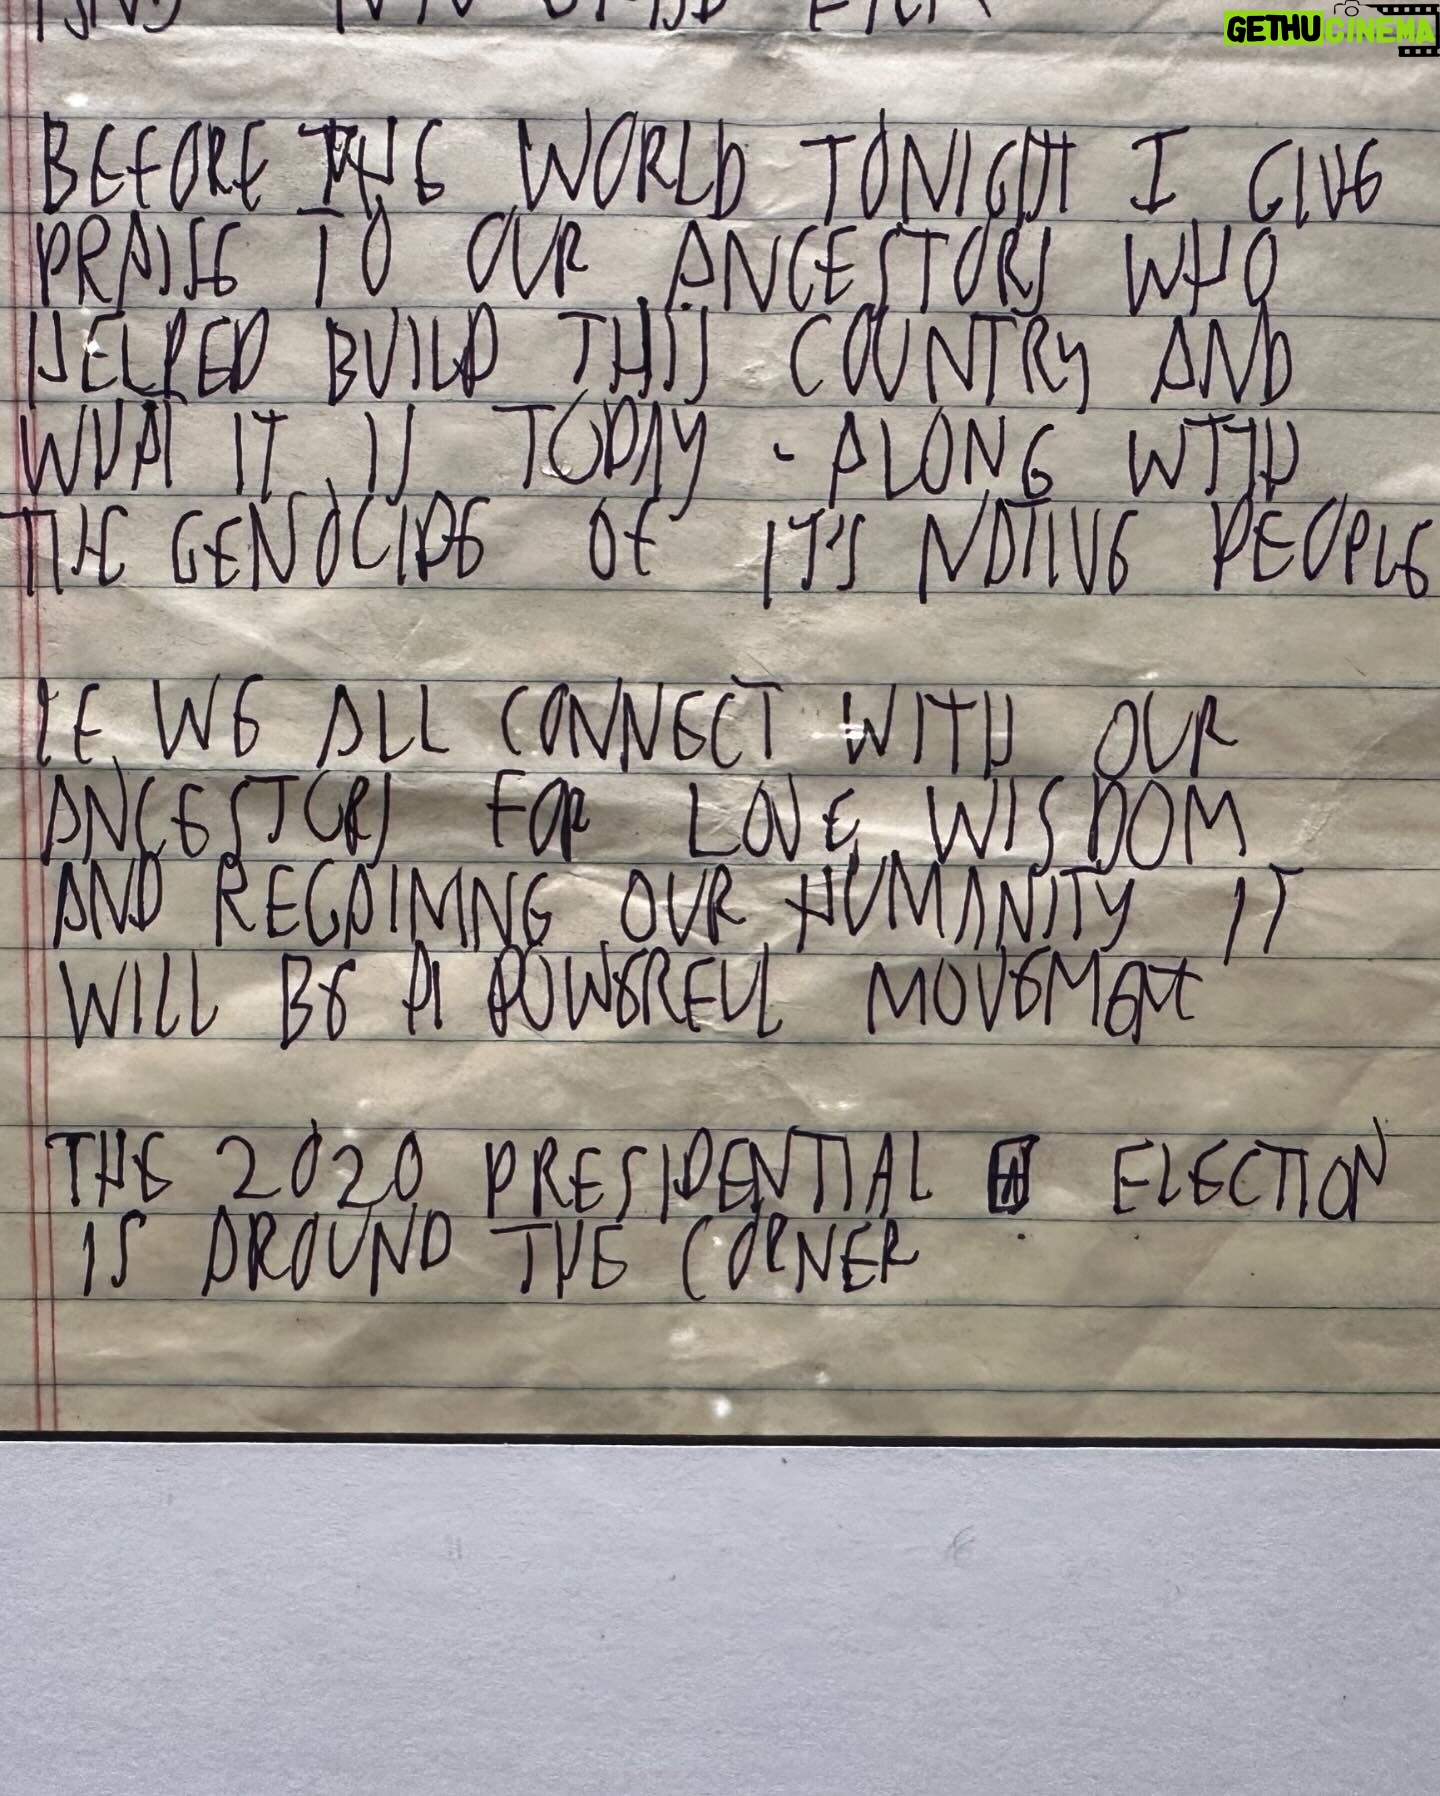 GETHUCINEMA
BEFORE THE WORLD TONIGHT I GIVE
PRAISE TO OUR ANCESTORS WHO
HELPED BUILD THIS COUNTRY AND
WHAT IT IS TODAY - ALONG WITH
THE GENOCIDE OF IT'S NATIVE PEOPLE
IF WE ALL CONNECT WITH OUR
ANCESTORS FOR LOVE WISDOM
AND REGAINING OUR HUMANITY IT
WILL BE A POWERFUL MOVEMENT
THE 2020 PRESIDENTIAL ELECTION
IS AROUND THE CORNER